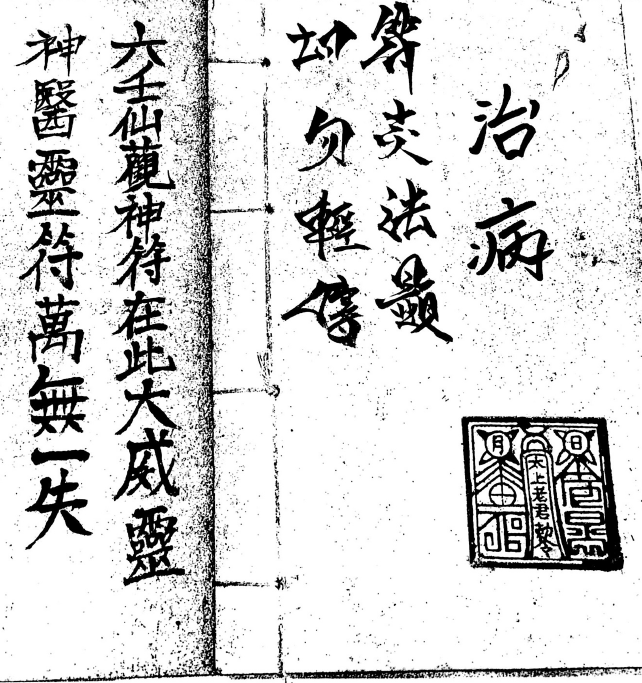 治病
符灵法顯
切勿輕傳
日
太上老君勅令
月
六壬仙觀神符在此大威靈
神醫靈符萬無一失